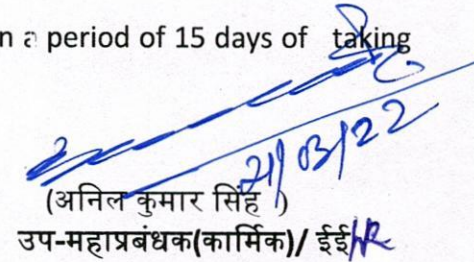 n a period of 15 days of taking
21/03/22
(अनिल कुमार सिंह )
उप-महाप्रबंधक(कार्मिक)/ ईई/HR